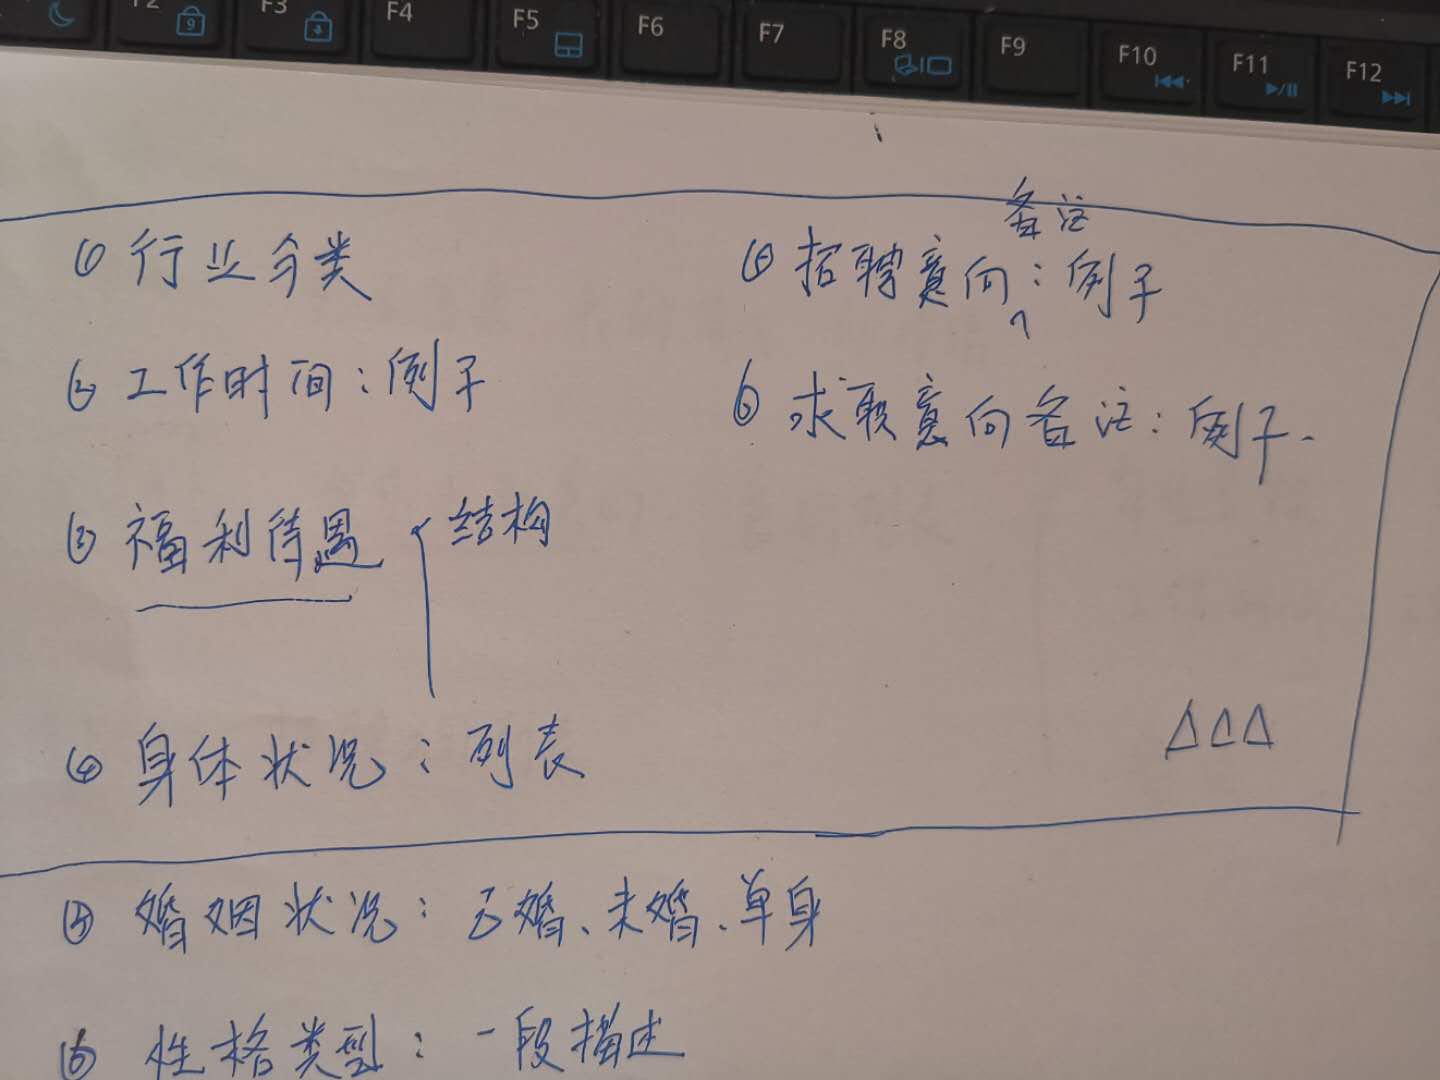 F2 9 F3 F4 F5 F6 F7 F8 F9 F10 F11 F12
① 行业分类
② 工作时间：例子
③ 福利待遇 { 结构
④ 身体状况：列表
备注
⑤ 招聘意向：例子
⑥ 求职意向备注：例子.
△△△
⑤ 婚姻状况：已婚、未婚、单身
⑥ 性格类型：一段描述